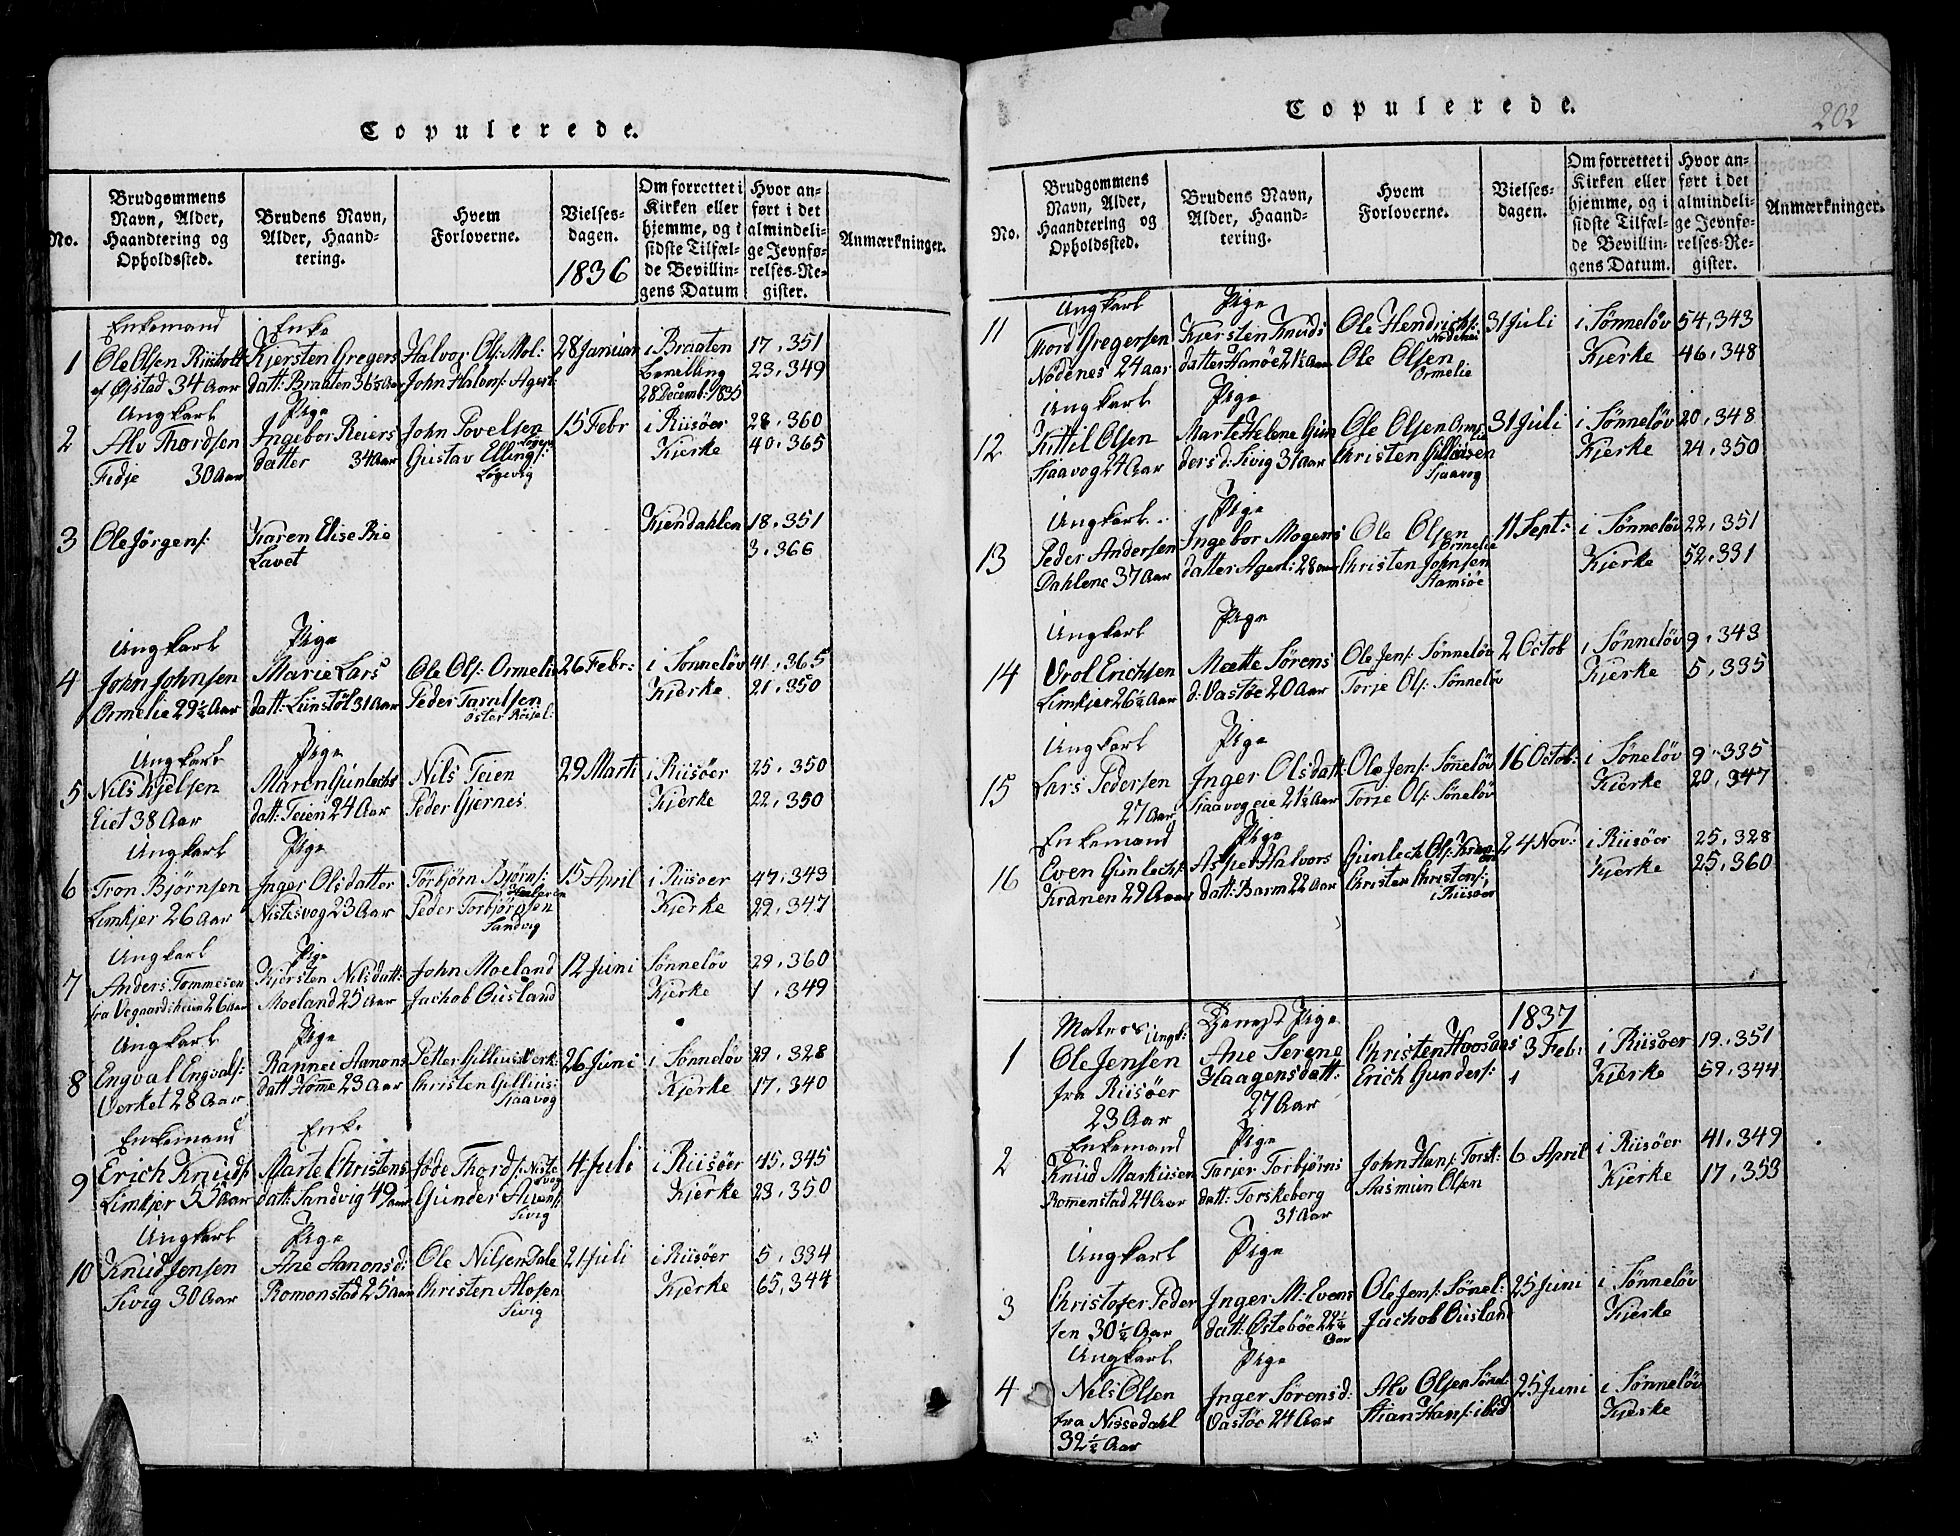 Copulerede.
No.
Brudgommens Navn, Alder, Haandtering og Opholdssted.
Brudens Navn, Alder, Haandtering.
Hvem Forloverne.
Vielsesdagen.
1836
Om forrettet i Kirken eller hjemme, og i sidste Tilfælde Bevillingens Datum
Hvor anført i det almindelige Jevnførelses-Register.
Anmærkninger.
Enkemand Enke
1 Ole Olsen Riisholt Kjersten Gregers Halvor Ols: Mol: 28 Januar i Braaten 17, 351
af Østad 34 Aar datt: Braaten 36½ Aar John Halvors: Agerl: Bevelling 23, 349
28 Decemb: 1835
Ungkarl Pige
2 Alv Thordsen Ingebor Reiers John Povelsen 15 Febr i Riisøer 28, 360
Fidje 30 Aar datter 34 Aar Gustav Ellings: Løgevig Kjerke 40, 365
3 Ole Jørgens: Karen Elise Kjendahlen 18, 351
Lavet 3, 366
Ungkarl Pige
4 John Johnsen Marie Lars Ole Ols: Ormelie 26 Febr: i Sønneløv 41, 365
Ormelie 29½ Aar datt: Lunstøl 31 Aar Peder Tarntsen Kjerke 21, 350
Ungkarl Pige
5 Nils Kjelsen Maren Gunlechs Nils Teien 29 Marti i Riisøer 25, 350
Eiet 38 Aar datt: Teien 24 Aar Peder Gjernes Kjerke 22, 350
Ungkarl Pige
6 Tron Bjørnsen Inger Olsdatter Torbjørn Bjørns: 15 April i Riisøer 47, 343
Limkjer 26 Aar Nistesvog 23 Aar Peder Torbjørnsen Kjerke 29, 347
Sandvig
Ungkarl Pige
7 Anders Tommesen Kjersten Nilsdatt: John Moeland 12 Juni Sønneløv 29, 360
fra Vegaardsheien 26 Aar Moeland 25 Aar Jachob Ousland Kjerke 1, 349
Ungkarl Pige
8 Engval Engvals: Rannei Aanons Petter Gillius: Verk: 26 Juni i Sønneløv 29, 328
Verket 28 Aar datt: Home 23 Aar Christen Gillius: Kjerke 17, 340
Sjaavog
Enkemand Enke
9 Erich Knuds: Marte Christens Jøde Thords: Nistevog 4 Juli i Riisøer 45, 345
Limkjer 55 Aar datt: Sandvig 49 aar Gunder Kjerke 23, 350
Sivig
Ungkarl Pige
10 Knud Jensen Ane Aanonsd: Ole Nilsen Dale 21 Juli i Riisøer 5, 334
Sivig 30 Aar Romonstad 25 Aar Christen Alvsen Kjerke 65, 344
Sivig
Copulerede.
202
No.
Brudgommens Navn, Alder, Haandtering og Opholdssted.
Brudens Navn, Alder, Haandtering.
Hvem Forloverne.
Vielsesdagen.
Om forrettet i Kirken eller hjemme, og i sidste Tilfælde Bevillingens Datum.
Hvor anført i det almindelige Jevnførelses-Register.
Anmærkninger.
Ungkarl Pige
11 Thord Gregersen Kjersten Knuds Ole Hendrichs: 31 Juli i Sønneløv 54, 343
Nødenes 24 aar datter Hanøe 21½ Aar Ole Olsen Kjerke 46, 348
Ormelie
Ungkarl Pige
12 Kittil Olsen Marte Helene Gun Ole Olsen Ormelie 31 Juli i Sønneløv 20, 348
Sjaavog 24 Aar dersd: Sivig 31 Aar Christen Gilliusen Kjerke 24, 350
Sjaavog
Ungkarl Pige
13 Peder Andersen Ingebor Mogens Ole Olsen Ormelie 11 Sept: i Sønneløv 22, 351
Dahlene 37 Aar datter Agerl: 28 aar Christen Johnsen Kjerke 52, 331
Stamsøe
Ungkarl Pige
14 Vrol Erichsen Mætte Sørens Ole Jens: Sønneløv 2 Octob i Sønneløv 9, 343
Limkjer 26½ Aar d: Vastøe 20 Aar Torje Ols: Sønneløv Kjerke 5, 335
Ungkarl Pige
15 Lars Pedersen Inger Olsdatt: Ole Jens: Søneløv 16 Octob: i Søneløv 9, 335
27 Aar Sjaavogeie 21½ Aar Torje Ols: Søneløv Kjerke 20, 347
Enkemand Pige
16 Even Gunlechs: Aslet Halvors Gunlech Ols: Kranen 24 Nov: i Riisøer 25, 328
Kranen 29 Aar datt: Barm 22 Aar Christen Christens: Kjerke 25, 360
i Riisøer
1837
Matros Ungk: Tjenest Pige
1 Ole Jensen Ane Serene Christen Hoosdaas 3 Feb: i Riisøer 19, 351
fra Riisøer Haagensdatt: Erich Gunders: Kjerke 59, 344
23 Aar 27 Aar
Enkemand Pige
2 Knud Markusen Tarjer Torbjørns John Hans: Torsk: 6 April i Riisøer 41, 349
Romenstad 24 Aar datt: Torskeberg Aasmun Olsen Kjerke 17, 353
31 Aar
Ungkarl Pige
3 Christofer Peder Inger M: Evens Ole Jens: Sønel: 25 Juni i Sønneløv
sen 30½ Aar datt: Østebøe 22½ Aar Jachob Ousland Kjerke
Ungkarl Pige
4 Nils Olsen Inger Sørensd: Alv Olsen Sønel: 25 Juni i Sønneløv
fra Nissedahl Vastøe 24 Aar Stian Hans: ibid Kjerke
32½ Aar